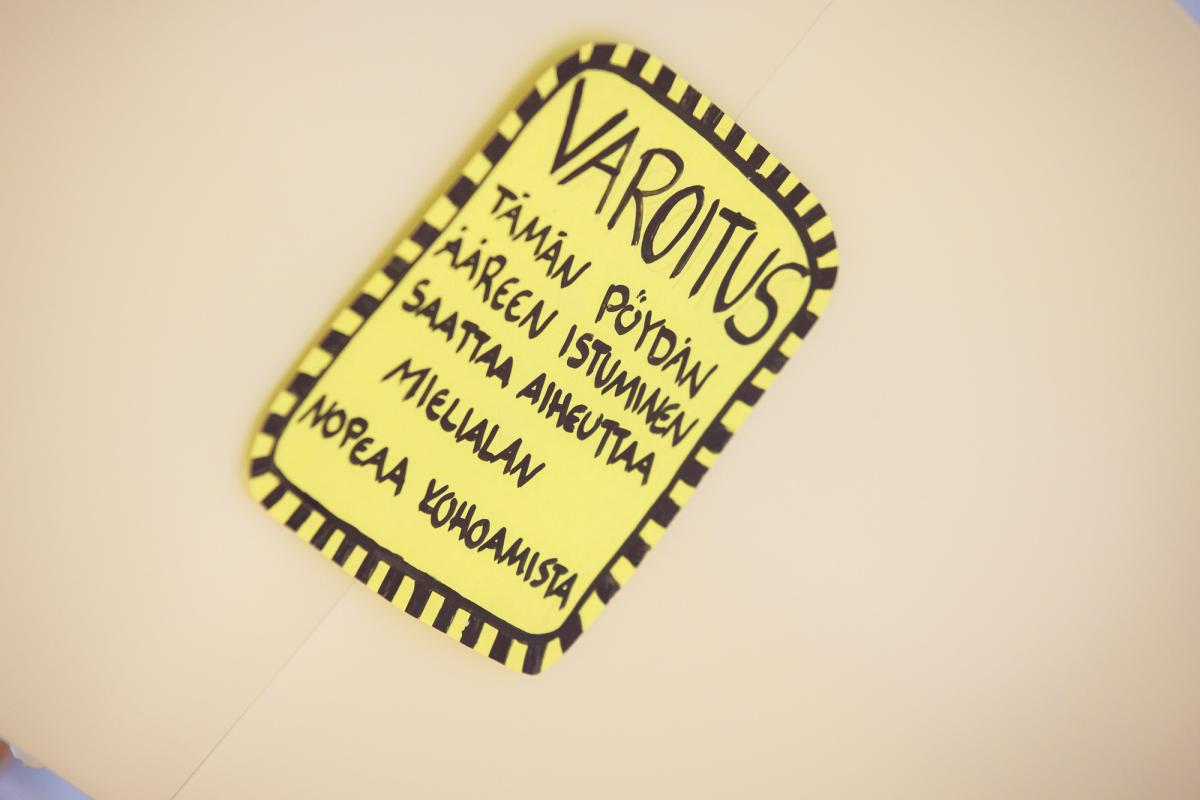 VAROITUS
TÄMÄN PÖYDÄN
ÄÄREEN ISTUMINEN
SAATTAA AIHEUTTAA
MIELIALAN
NOPEAA KOHOAMISTA